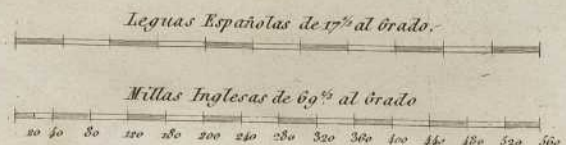 Leguas Españolas de 17½ al Grado.
Millas Inglesas de 69½ al Grado
20 40 80 120 160 200 240 280 320 360 400 440 480 520 560